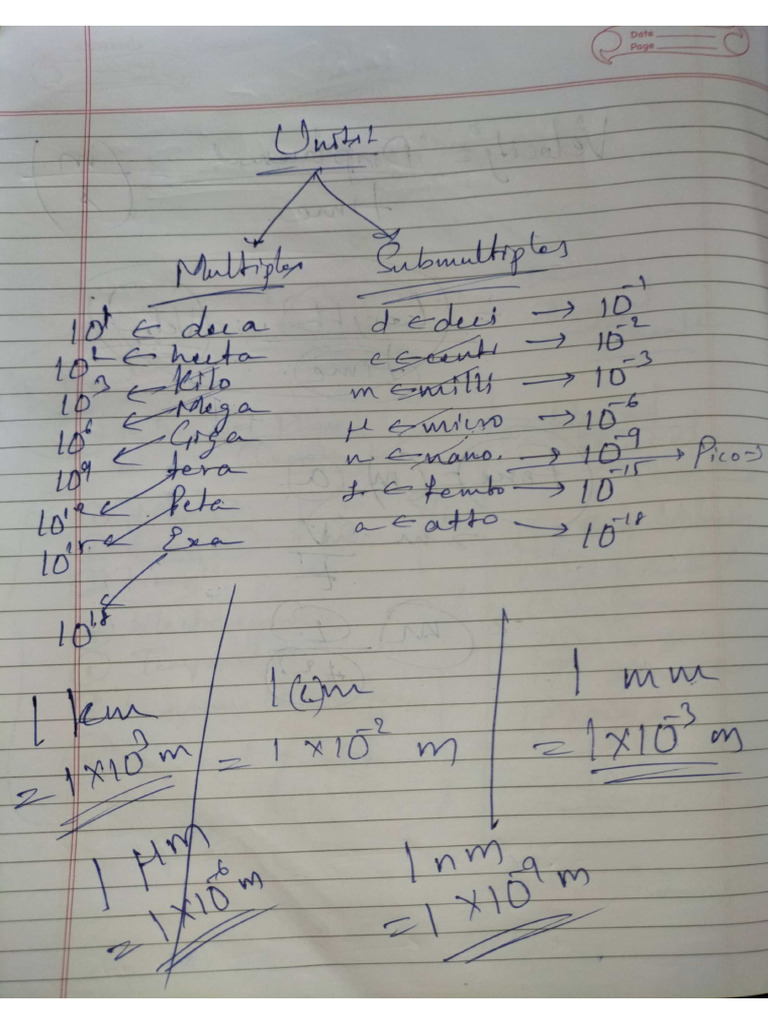 Date
Page
Units
Multiples Submultiples
10¹ ← deca d ← deci → 10⁻¹
10² ← hecta c ← centi → 10⁻²
10³ ← Kilo m ← milli → 10⁻³
10⁶ ← Mega μ ← micro → 10⁻⁶
10⁹ ← Giga n ← nano. → 10⁻⁹ → Pico →
10¹² ← tera f ← femto → 10⁻¹⁵
10¹⁵ ← Peta a ← atto → 10⁻¹⁸
10¹⁸ ← Exa
1 km 1 (c)m 1 mm
= 1×10³ m = 1×10⁻² m = 1×10⁻³ m
1 μm 1 nm
= 1×10⁻⁶ m = 1×10⁻⁹ m